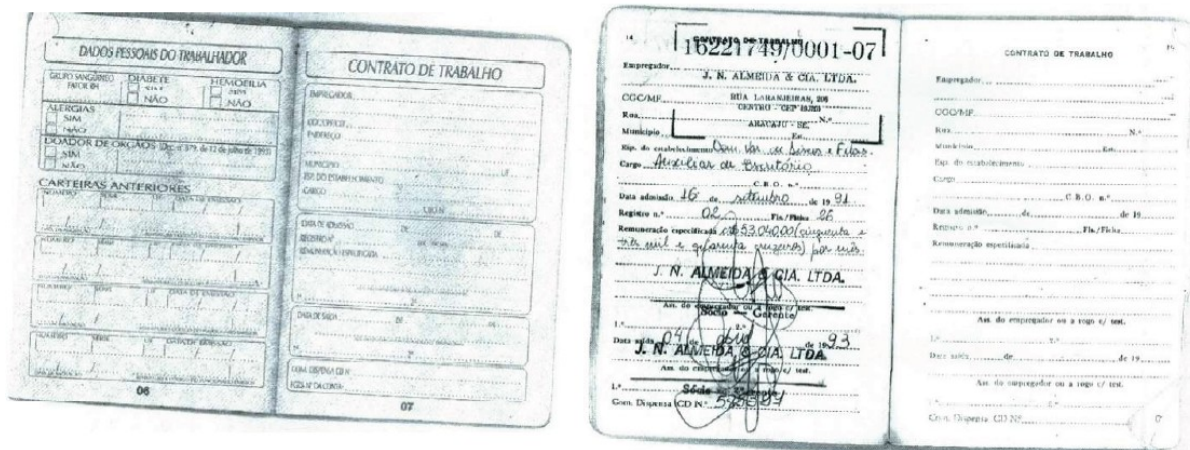 DADOS PESSOAIS DO TRABALHADOR
GRUPO SANGUÍNEO
FATOR RH
DIABETE
SIM
NÃO
HEMOFILIA
SIM
NÃO
ALERGIAS
SIM
NÃO
DOADOR DE ÓRGÃOS (Dec. nº 879, de 12 de julho de 1993)
SIM
NÃO
CARTEIRAS ANTERIORES
NÚMERO SÉRIE UF DATA DE EMISSÃO
NÚMERO SÉRIE UF DATA DE EMISSÃO
NÚMERO SÉRIE UF DATA DE EMISSÃO
NÚMERO SÉRIE UF DATA DE EMISSÃO
06
CONTRATO DE TRABALHO
EMPREGADOR
ENDEREÇO
MUNICÍPIO UF
ESP. DO ESTABELECIMENTO
CARGO
CBO Nº
DATA DE ADMISSÃO DE DE
REGISTRO Nº
REMUNERAÇÃO ESPECIFICADA
DATA DE SAÍDA DE DE
COM. DISPENSA CD Nº
FGTS Nº DA CONTA
07
14
CONTRATO DE TRABALHO
16221749/0001-07
Empregador
J. N. ALMEIDA & CIA. LTDA.
CGC/MF
RUA LARANJEIRAS, 206
CENTRO - CEP
Rua N.º
ARACAJU - SE.
Município Est.
Esp. do estabelecimento Com. Var. de Discos e Fitas.
Cargo Auxiliar de Escritório
C.B.O. n.º
Data admissão 16 de setembro de 19 91
Registro n.º 02 Fls./Ficha 26
Remuneração especificada Cr$ 53.040,00 (cinquenta e
três mil e quarenta cruzeiros) por mês.
J. N. ALMEIDA & CIA. LTDA.
Ass. do empregador ou a rogo c/ test.
Sócio - Gerente
1.º 2.º
Data saída 04 de abril de 19 93
J. N. ALMEIDA & CIA. LTDA.
Ass. do empregador ou a rogo c/ test.
1.º
Sócio Gerente
Com. Dispensa CD N.º
CONTRATO DE TRABALHO
Empregador
CGC/MF
Rua N.º
Município Est.
Esp. do estabelecimento
Cargo
C.B.O. n.º
Data admissão de de 19
Registro n.º Fls./Ficha
Remuneração especificada
Ass. do empregador ou a rogo c/ test.
1.º 2.º
Data saída de de 19
Ass. do empregador ou a rogo c/ test.
1.º 2.º
Com. Dispensa CD Nº